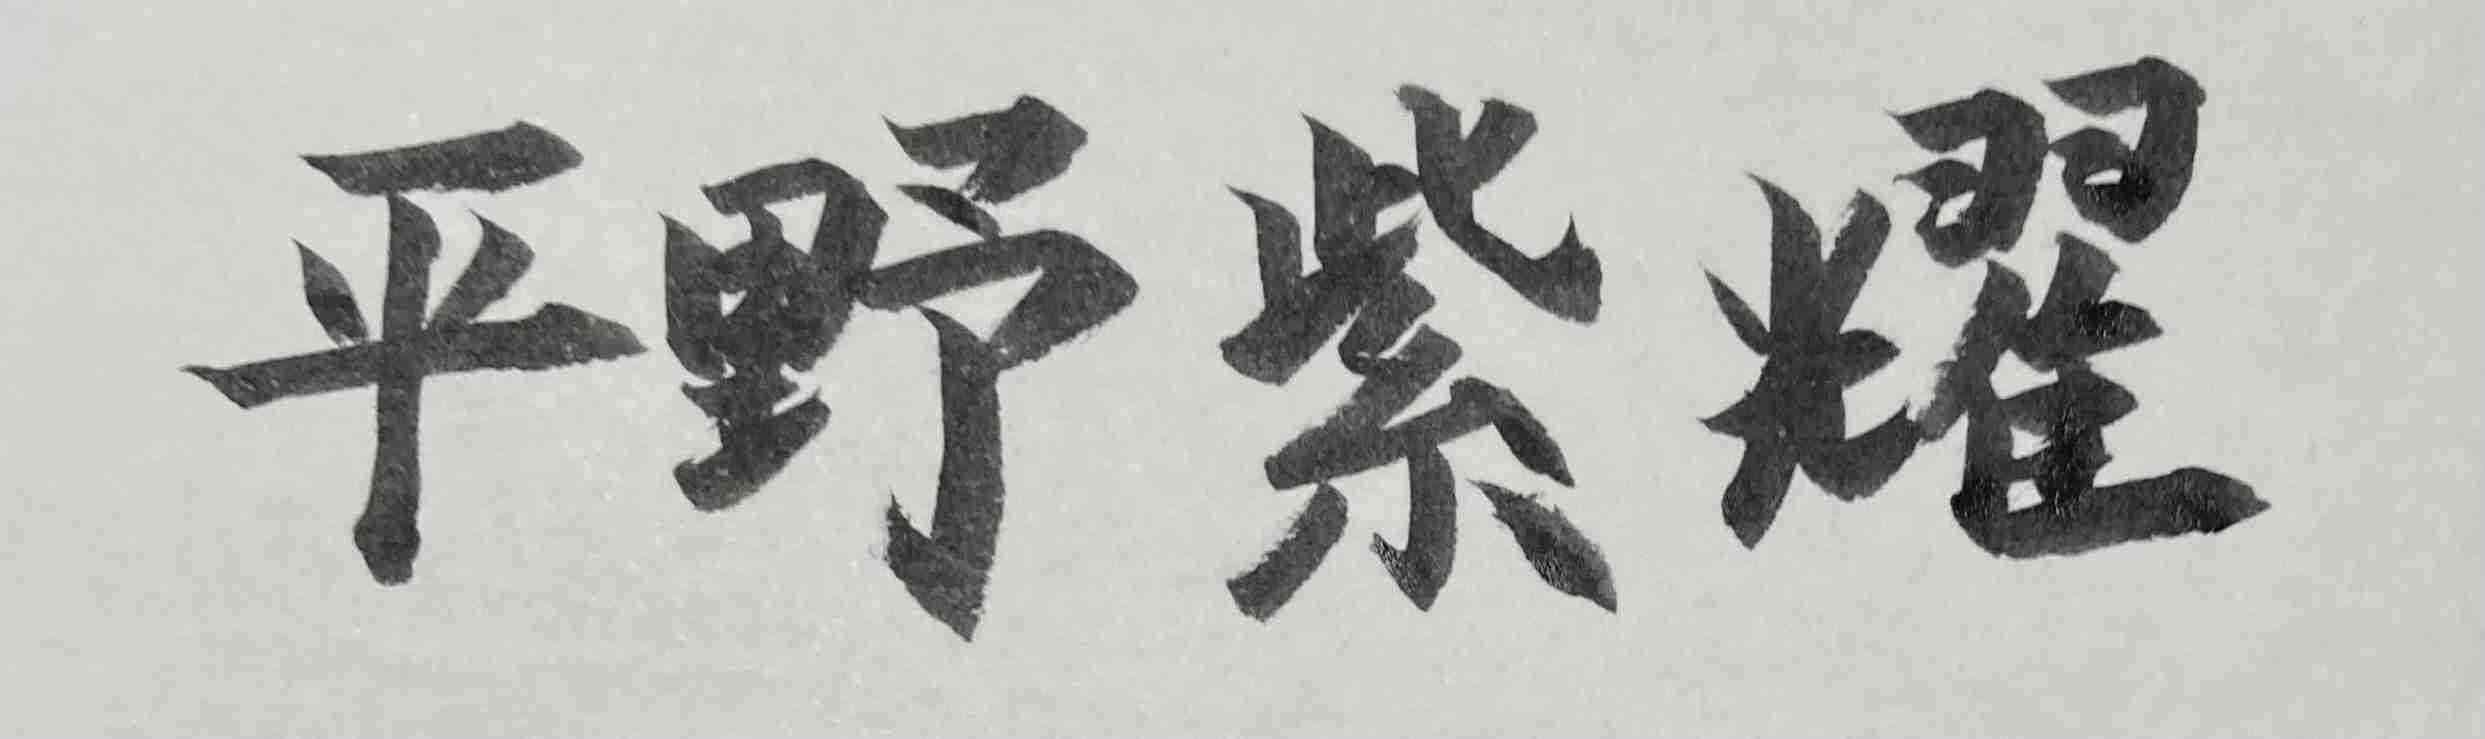 平野紫耀